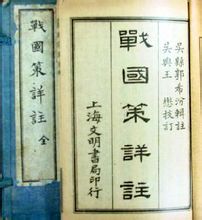 戰國策詳註 全
吳縣郭希汾輯註
吳興王 懋校訂
戰國策詳註
上海文明書局印行